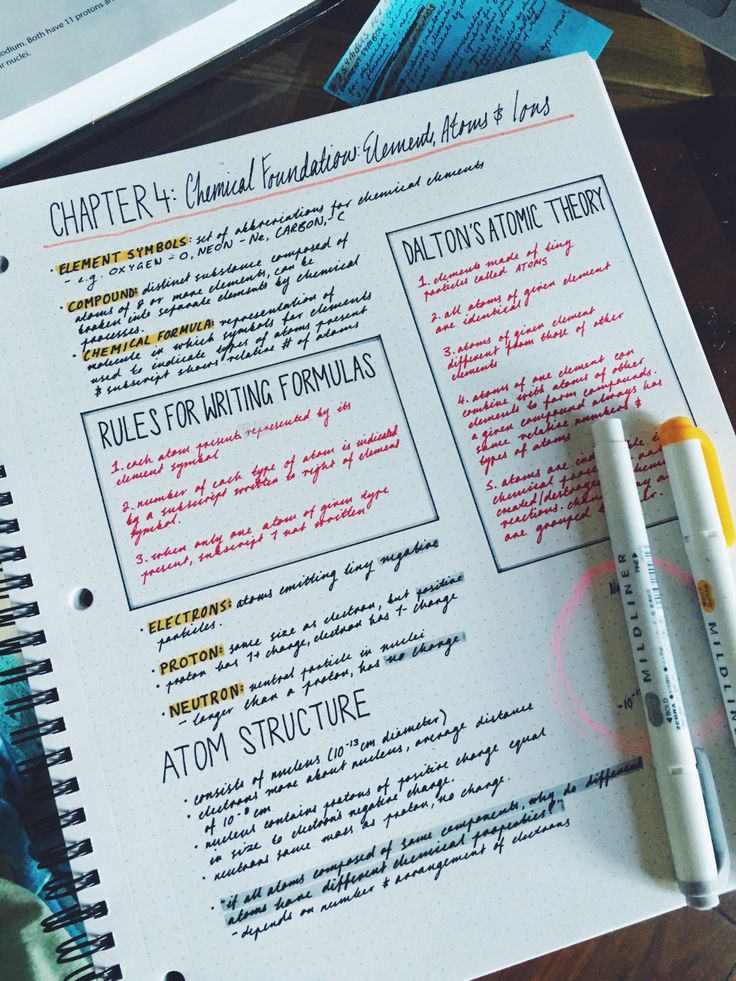 odium. Both have 11 protons an
r nuclei.
CHAPTER 4: Chemical Foundation: Elements, Atoms & Ions
· ELEMENT SYMBOLS: set of abbreviations for chemical elements
- e.g. OXYGEN - O, NEON - Ne, CARBON, - C
· COMPOUND: distinct substance composed of
atoms of 2 or more elements, can be
broken into separate elements by chemical
processes.
· CHEMICAL FORMULA: representation of
molecule in which symbols for elements
used to indicate types of atoms present
& subscript shows relative # of atoms
RULES FOR WRITING FORMULAS
1. each atom present represented by its
element symbol
2. number of each type of atom is indicated
by a subscript written to right of element
symbol.
3. when only one atom of given type
present, subscript 1 not written
DALTON'S ATOMIC THEORY
1. elements made of tiny
particles called ATOMS
2. all atoms of given element
are identical
3. atoms of given element
different from those of other
elements
4. atoms of one element can
combine with atoms of other
elements to form compounds.
a given compound always has
same relative numbers &
types of atoms
5. atoms are
chemical
created/destroyed
reactions.
are grouped
· ELECTRONS: atoms emitting tiny negative
particles.
· PROTON: same size as electron, but positive
· proton has 1+ charge, electron has 1- charge
· NEUTRON: neutral particle in nuclei
- larger than a proton, has no charge
ATOM STRUCTURE
· consists of nucleus (10⁻¹³cm diameter)
· electrons move about nucleus, average distance
of 10⁻⁸cm
· nucleus contains protons of positive charge equal
in size to electron's negative charge.
· neutrons same mass as proton, no charge.
· "if all atoms composed of same components, why do different
atoms have different chemical properties?"
- depends on number & arrangement of electrons
MILDLINER
BOLD
ZEBRA
FINE
MILDLINER